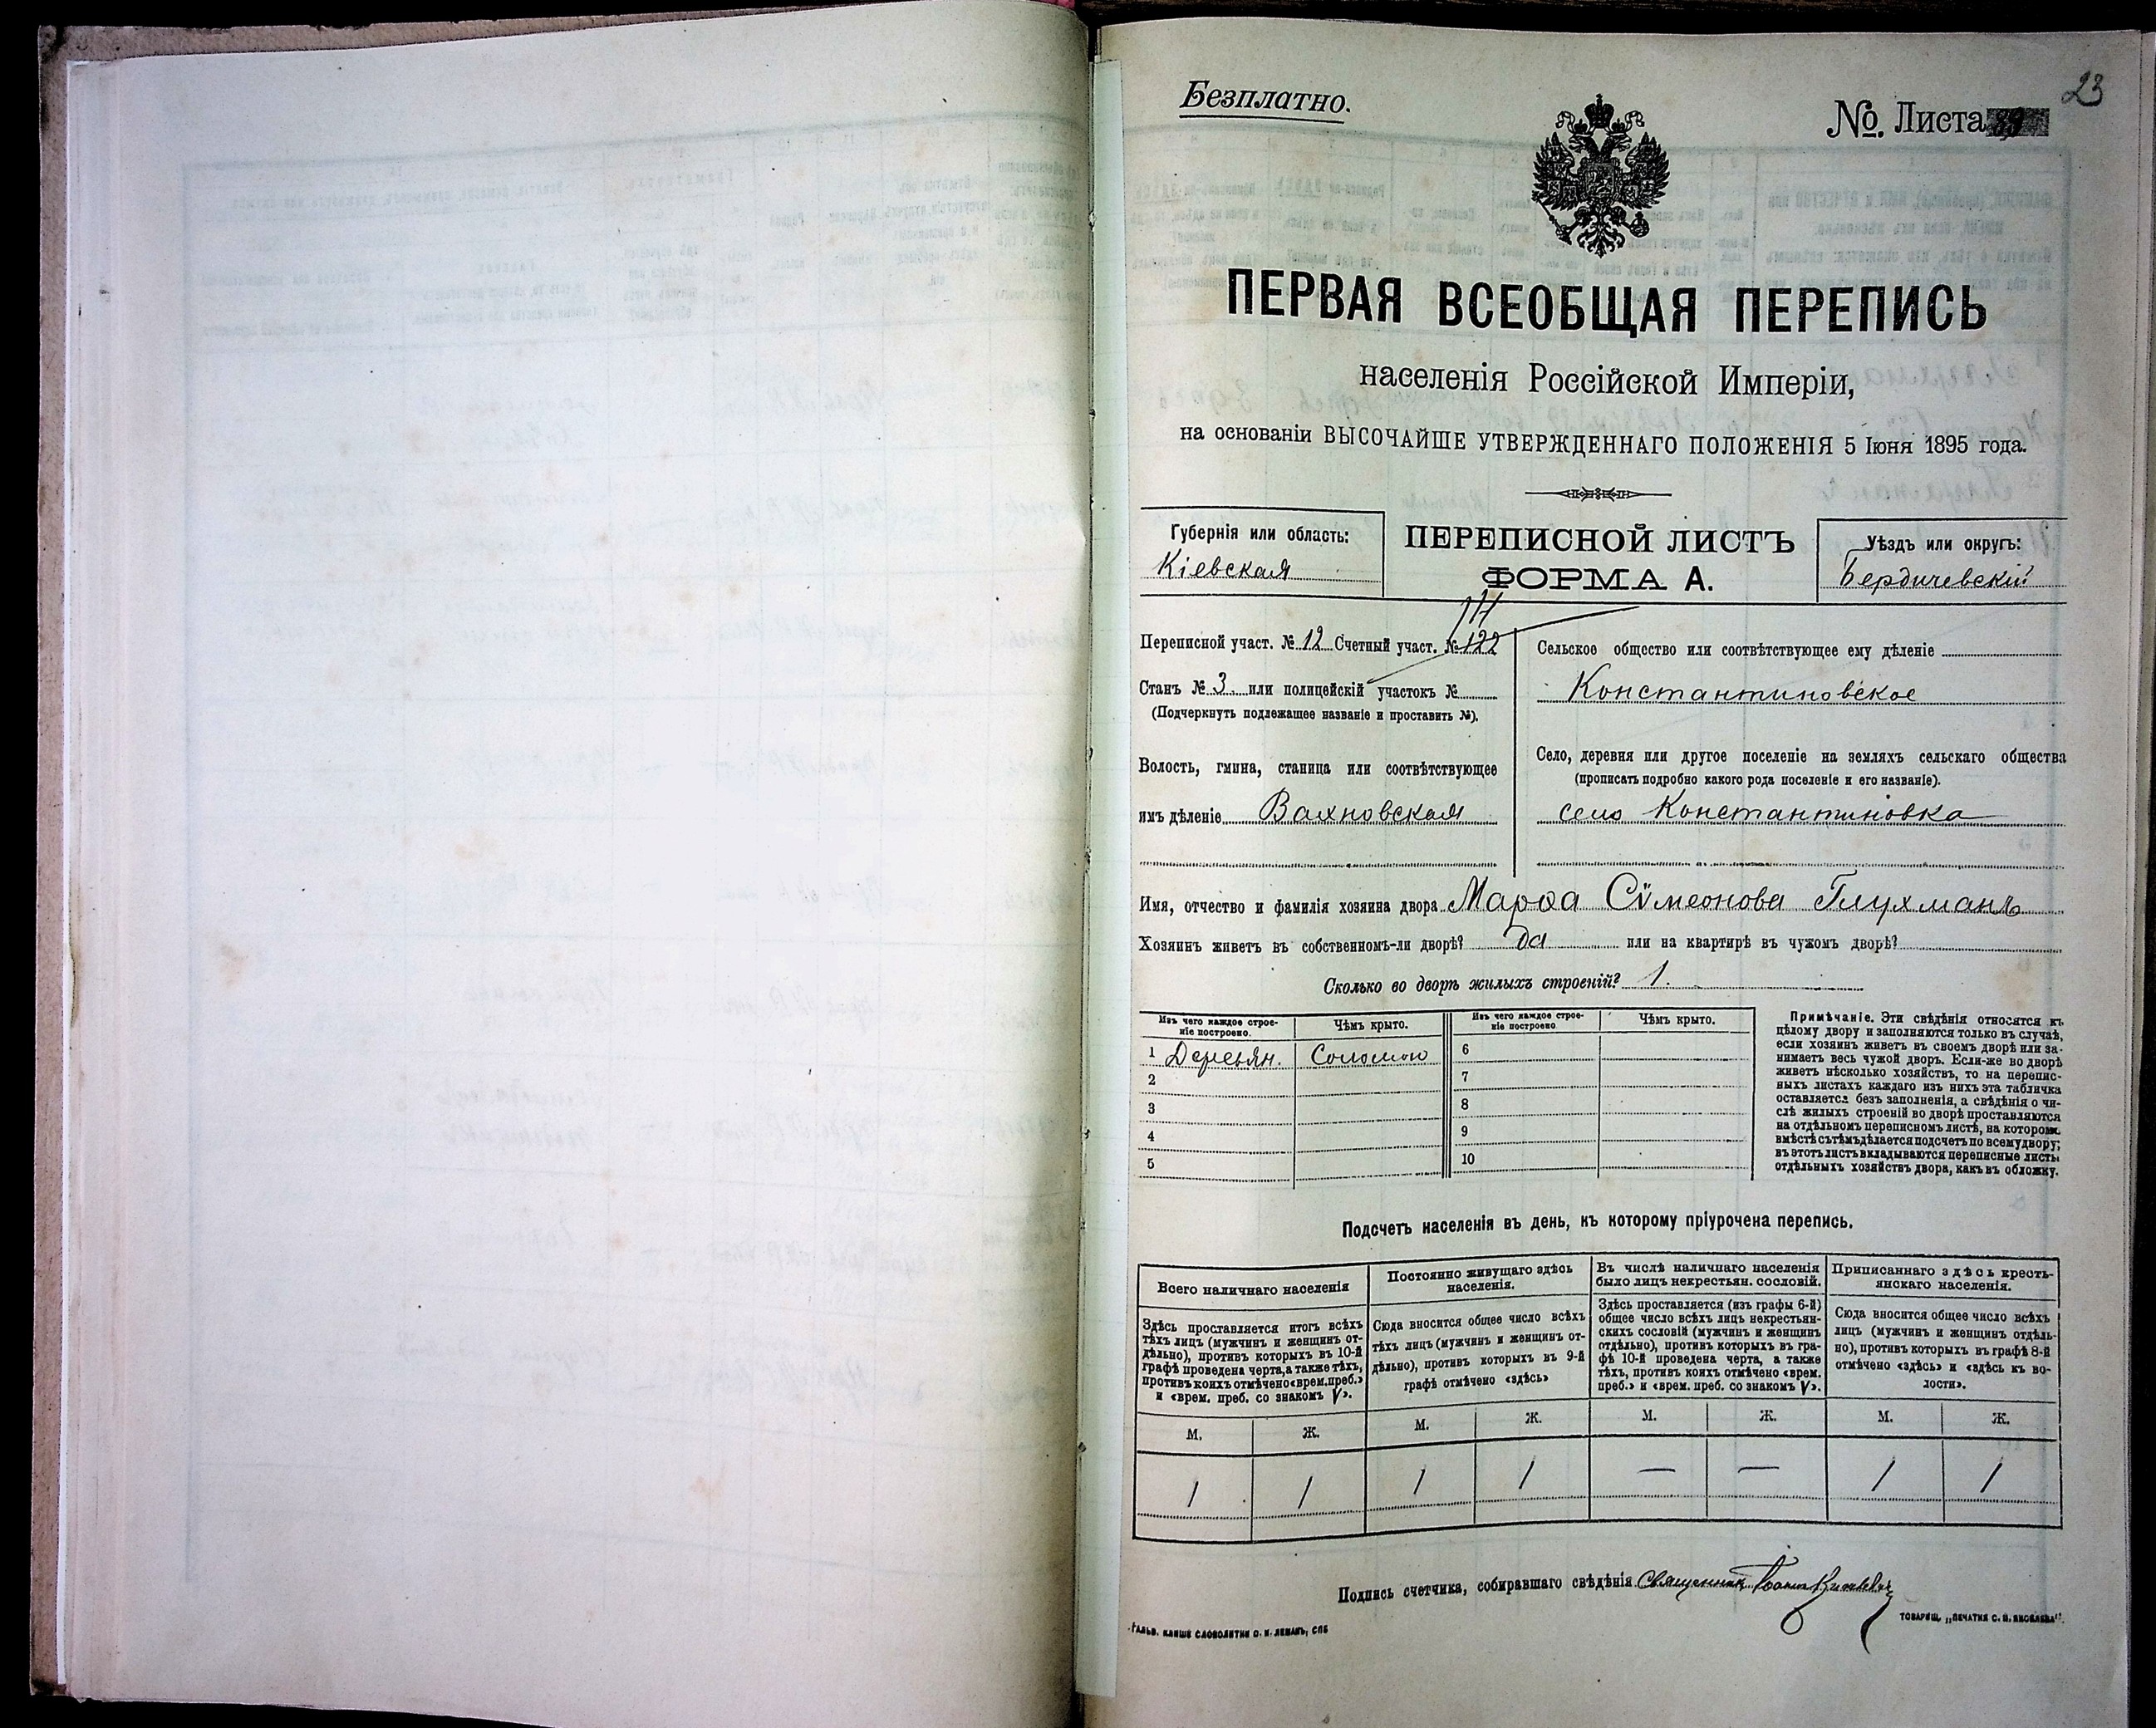 23
Безплатно.
№. Листа
ПЕРВАЯ ВСЕОБЩАЯ ПЕРЕПИСЬ
населенія Россійской Имперіи,
на основаніи ВЫСОЧАЙШЕ УТВЕРЖДЕННАГО ПОЛОЖЕНІЯ 5 Іюня 1895 года.
Губернія или область:
Кіевская
ПЕРЕПИСНОЙ ЛИСТЪ
ФОРМА А.
Уѣздъ или округъ:
Бердичевскій
Переписной участ. № 12 Счетный участ. № 122
Станъ № 3 или полицейскій участокъ №
(Подчеркнуть подлежащее названіе и проставить №).
Волость, гмина, станица или соотвѣтствующее
имъ дѣленіе Вахновская
Сельское общество или соотвѣтствующее ему дѣленіе
Константиновское
Село, деревня или другое поселеніе на земляхъ сельскаго общества
(прописать подробно какого рода поселеніе и его названіе).
село Константиновка
Имя, отчество и фамилія хозяина двора Марѳа Сѵмеонова Глухманъ
Хозяинъ живетъ въ собственномъ-ли дворѣ? да или на квартирѣ въ чужомъ дворѣ?
Сколько во дворѣ жилыхъ строеній? 1.
Изъ чего каждое строе-
ніе построено.
Чѣмъ крыто.
Изъ чего каждое строе-
ніе построено
Чѣмъ крыто.
1 Деревян. Соломою
2
3
4
5
6
7
8
9
10
Примѣчаніе. Эти свѣдѣнія относятся къ
цѣлому двору и заполняются только въ случаѣ,
если хозяинъ живетъ въ своемъ дворѣ или за-
нимаетъ весь чужой дворъ. Если-же во дворѣ
живетъ нѣсколько хозяйствъ, то на перепис-
ныхъ листахъ каждаго изъ нихъ эта табличка
оставляется безъ заполненія, а свѣдѣнія о чи-
слѣ жилыхъ строеній во дворѣ проставляются
на отдѣльномъ переписномъ листѣ, на которомъ
вмѣстѣ съ тѣмъ дѣлается подсчетъ по всему двору;
въ этотъ листъ вкладываются переписные листы
отдѣльныхъ хозяйствъ двора, какъ въ обложку.
Подсчетъ населенія въ день, къ которому пріурочена перепись.
Всего наличнаго населенія
Здѣсь проставляется итогъ всѣхъ
тѣхъ лицъ (мужчинъ и женщинъ от-
дѣльно), противъ которыхъ въ 10-й
графѣ проведена черта, а также тѣхъ,
противъ коихъ отмѣчено «врем. преб.»
и «врем. преб. со знакомъ V».
Постоянно живущаго здѣсь
населенія.
Сюда вносится общее число всѣхъ
тѣхъ лицъ (мужчинъ и женщинъ от-
дѣльно), противъ которыхъ въ 9-й
графѣ отмѣчено «здѣсь»
Въ числѣ наличнаго населенія
было лицъ некрестьян. сословій.
Здѣсь проставляется (изъ графы 6-й)
общее число всѣхъ лицъ некрестьян-
скихъ сословій (мужчинъ и женщинъ
отдѣльно), противъ которыхъ въ гра-
фѣ 10-й проведена черта, а также
тѣхъ, противъ коихъ отмѣчено «врем.
преб.» и «врем. преб. со знакомъ V».
Приписаннаго здѣсь кресть-
янскаго населенія.
Сюда вносится общее число всѣхъ
лицъ (мужчинъ и женщинъ отдѣль-
но), противъ которыхъ въ графѣ 8-й
отмѣчено «здѣсь» и «здѣсь къ во-
лости».
М. Ж. М. Ж. М. Ж. М. Ж.
1 1 1 1 — — 1 1
Подпись счетчика, собиравшаго свѣдѣнія Священникъ Іоаннъ
ГАЛЬВ. КЛИШЕ СЛОВОЛИТНИ О. И. ЛЕМАНЪ, СПБ
ТОВАРИЩ. „ПЕЧАТНЯ С. П. ЯКОВЛЕВА".